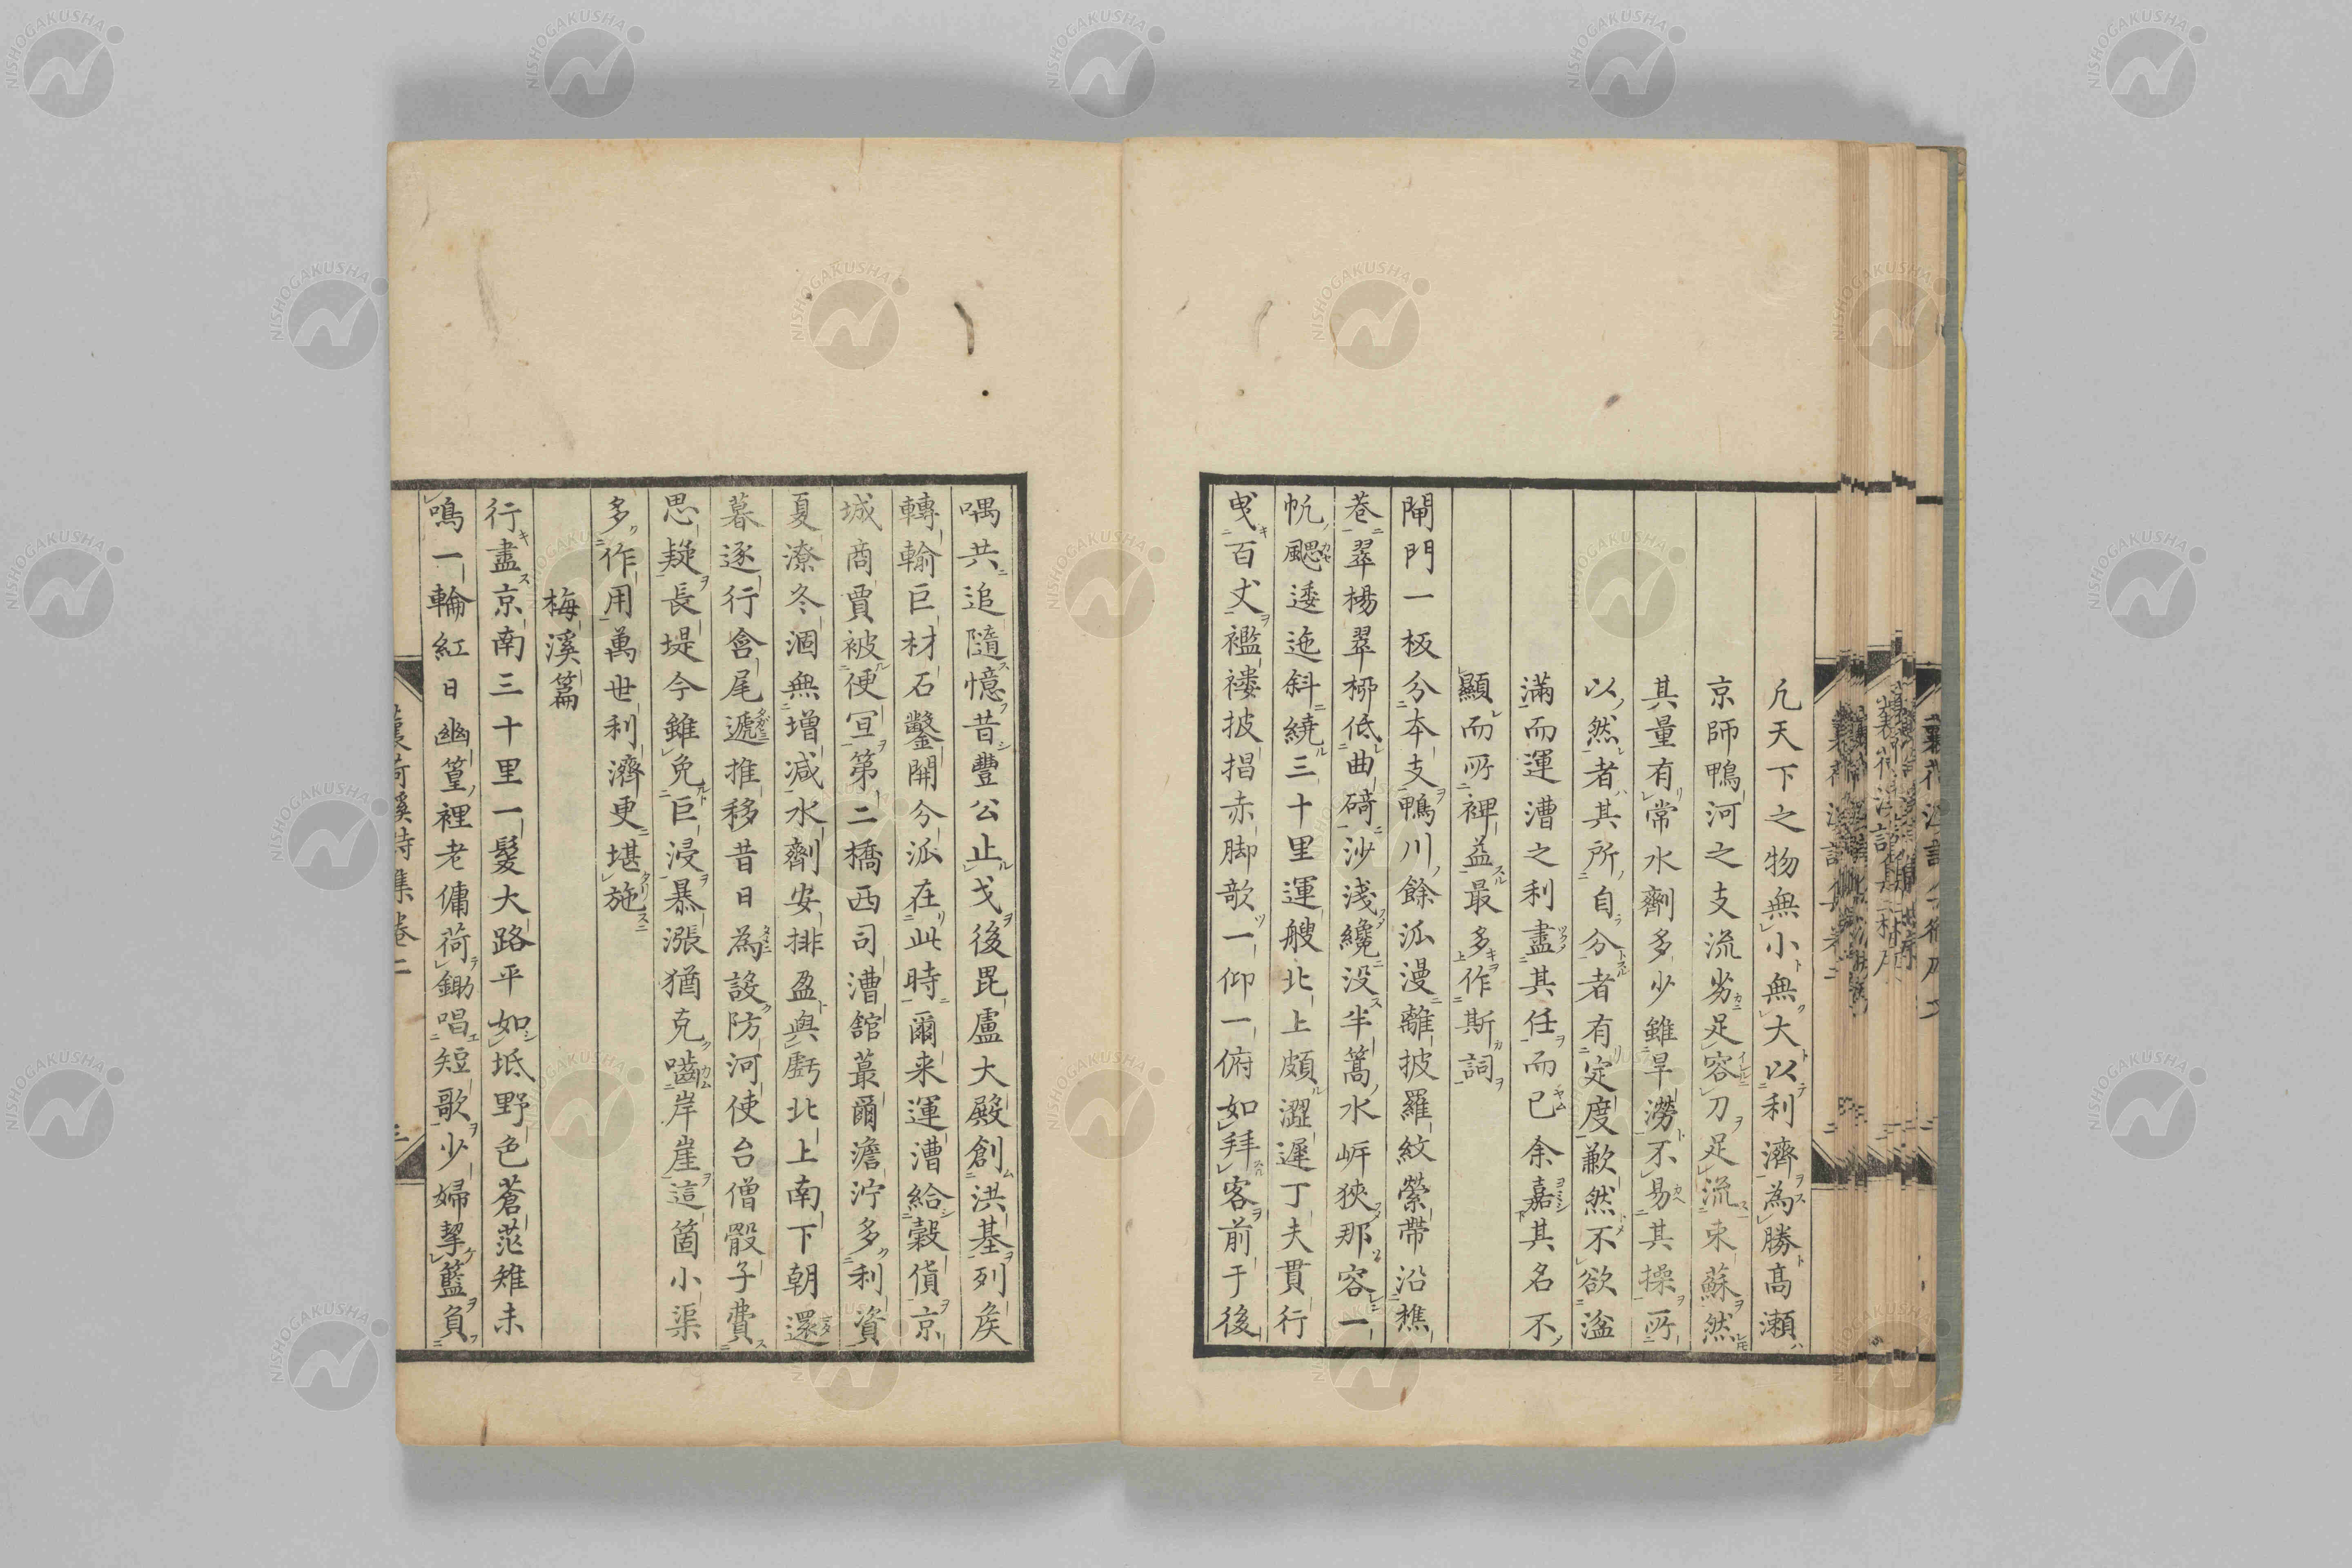 凢天下之物無小無大以利濟為勝高瀬
京師鴨河之支流劣足容刀足流束蘇然
其量有常水劑多少雖旱澇不易其操所
以然者其所自分者有定度歉然不欲溢
滿而運漕之利盡其任而已余嘉其名不
顯而所裨益最多作斯詞
閘門一板分本支鴨川餘泒漫離披羅紋縈帶沿樵
巷翠楊翠栁低曲碕沙淺纔没半篙水岍狹那容一
帆颸逶迤斜繞三十里運艘北上頗澀遲丁夫貫行
曳百丈襤褸披猖赤脚歌一仰一俯如拜客前于後
喁共追隨憶昔豐公止戈後毘盧大殿創洪基列矦
轉輸巨材石鑿開分泒在此時爾来運漕給穀貨京
城商賈被便冝第二橋西司漕舘蕞爾澹泞多利資
夏潦冬涸無増減水劑安排盈與虧北上南下朝還
暮逐行啣尾遞推移昔日為設防河使台僧骰子費
思疑長堤今雖免巨浸暴漲猶克嚙岸崖這箇小渠
多作用萬世利濟更堪施
梅溪篇
行盡京南三十里一髮大路平如坻野色蒼茫雉未
鳴一輪紅日幽篁裡老傭荷鋤唱短歌少婦挈籃負
蘘荷溪詩集卷二
NISHOGAKUSHA